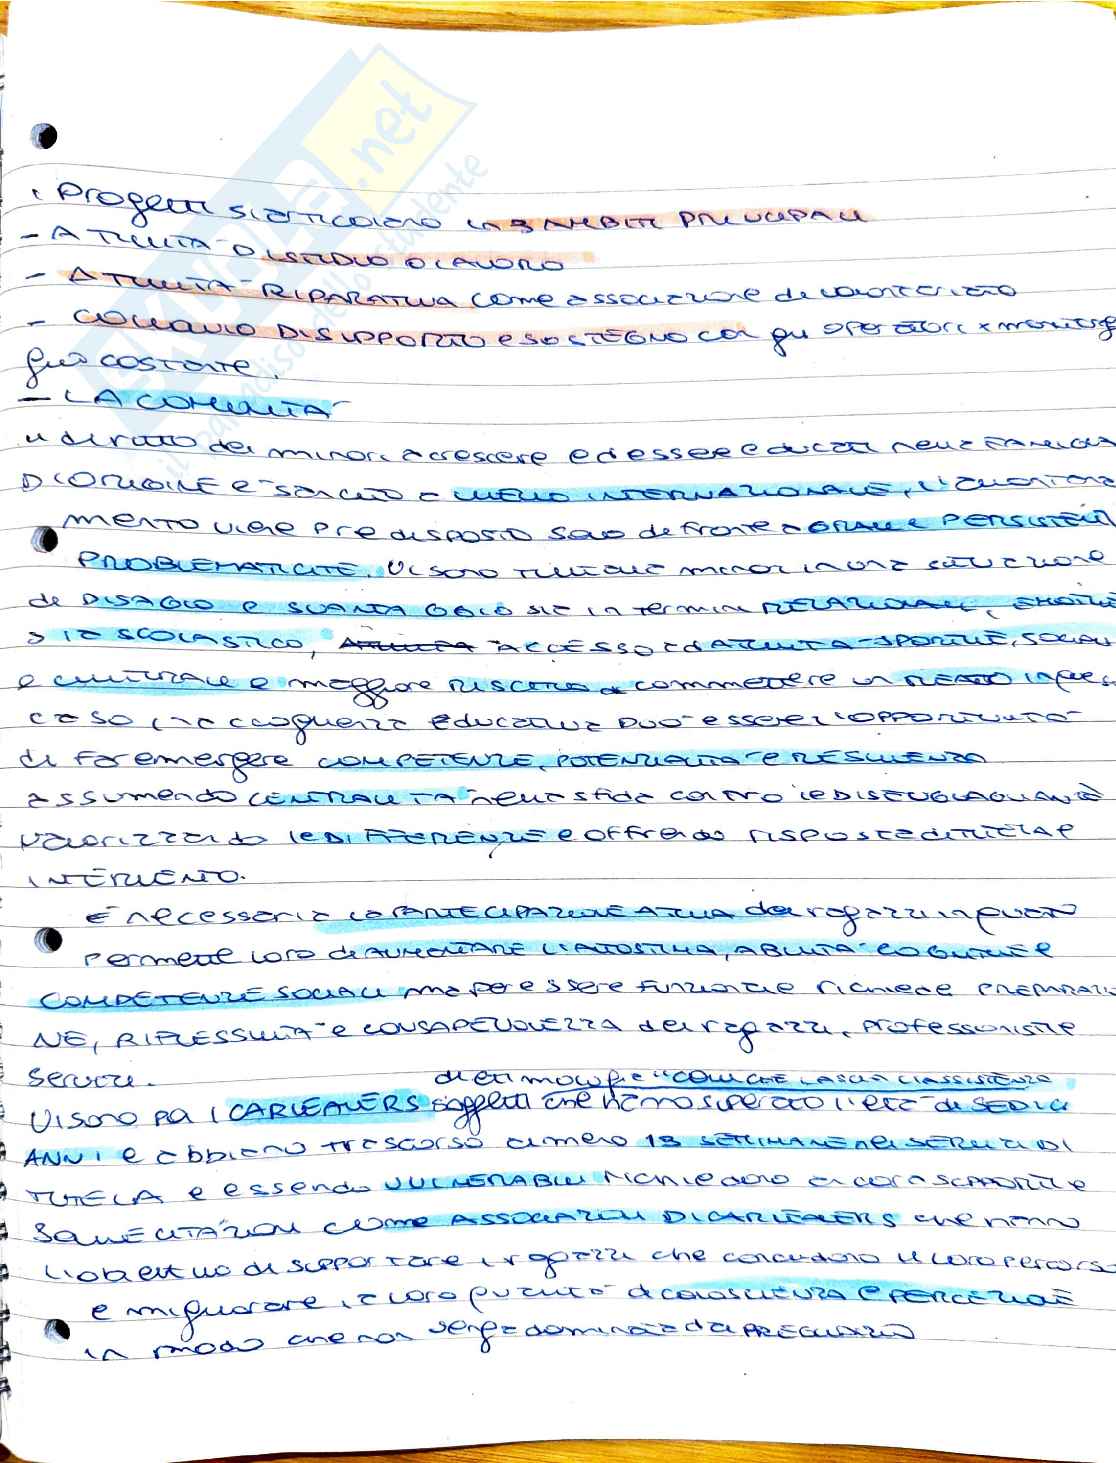 I Progetti si articolano in 3 AMBITI PRINCIPALI
- ATTIVITÀ DI STUDIO O LAVORO
- ATTIVITÀ RIPARATIVA come associazione di volontariato
- COLLOQUIO DI SUPPORTO e SOSTEGNO con gli operatori x monitorag
gio COSTANTE.
- LA COMUNITÀ
Il diritto dei minori a crescere ed essere educati nella FAMIGLIA
D'ORIGINE è sancito a LIVELLO INTERNAZIONALE, l'allontana
mento viene predisposto solo di fronte a GRAVI e PERSISTENTI
PROBLEMATICITÀ. Vi sono tuttavia minori in una situazione
di DISAGIO e SVANTAGGIO sia in termini RELAZIONALI, EMOTIVI
sia SCOLASTICO, ATTIVITÀ ACCESSO ad ATTIVITÀ SPORTIVE, SOCIALI
e CULTURALI e maggiore RISCHIO di commettere un REATO in
caso l'accoglienza educativa PUÒ essere l'OPPORTUNITÀ
di far emergere COMPETENZE, POTENZIALITÀ e RESILIENZA
assumendo CENTRALITÀ nella sfida contro le DISUGUAGLIANZE
valorizzando le DIFFERENZE e offrendo risposte di TUTELA e
INTERVENTO.
È necessaria la PARTECIPAZIONE ATTIVA dei ragazzi in quanto
permette loro di AUMENTARE L'AUTOSTIMA, ABILITÀ COGNITIVE e
COMPETENZE SOCIALI ma per essere funzionale richiede PREPARAZIO
NE, RIFLESSIVITÀ e CONSAPEVOLEZZA dei ragazzi, professionisti e
servizi.
di etimologia "COLUI CHE LASCIA L'ASSISTENZA
Vi sono poi i CARLEAVERS soggetti che hanno superato l'età di SEDICI
ANNI e abbiano trascorso almeno 13 SETTIMANE nei SERVIZI DI
TUTELA e essendo VULNERABILI richiedono ancora SUPPORTI e
SOLLECITAZIONI come ASSOCIAZIONI DI CARLEAVERS che hanno
l'obiettivo di supportare i ragazzi che concludono il loro percorso
e migliorare la loro qualità di CONOSCENZA e PERCEZIONE
in modo che non venga dominata dal PREGIUDIZIO